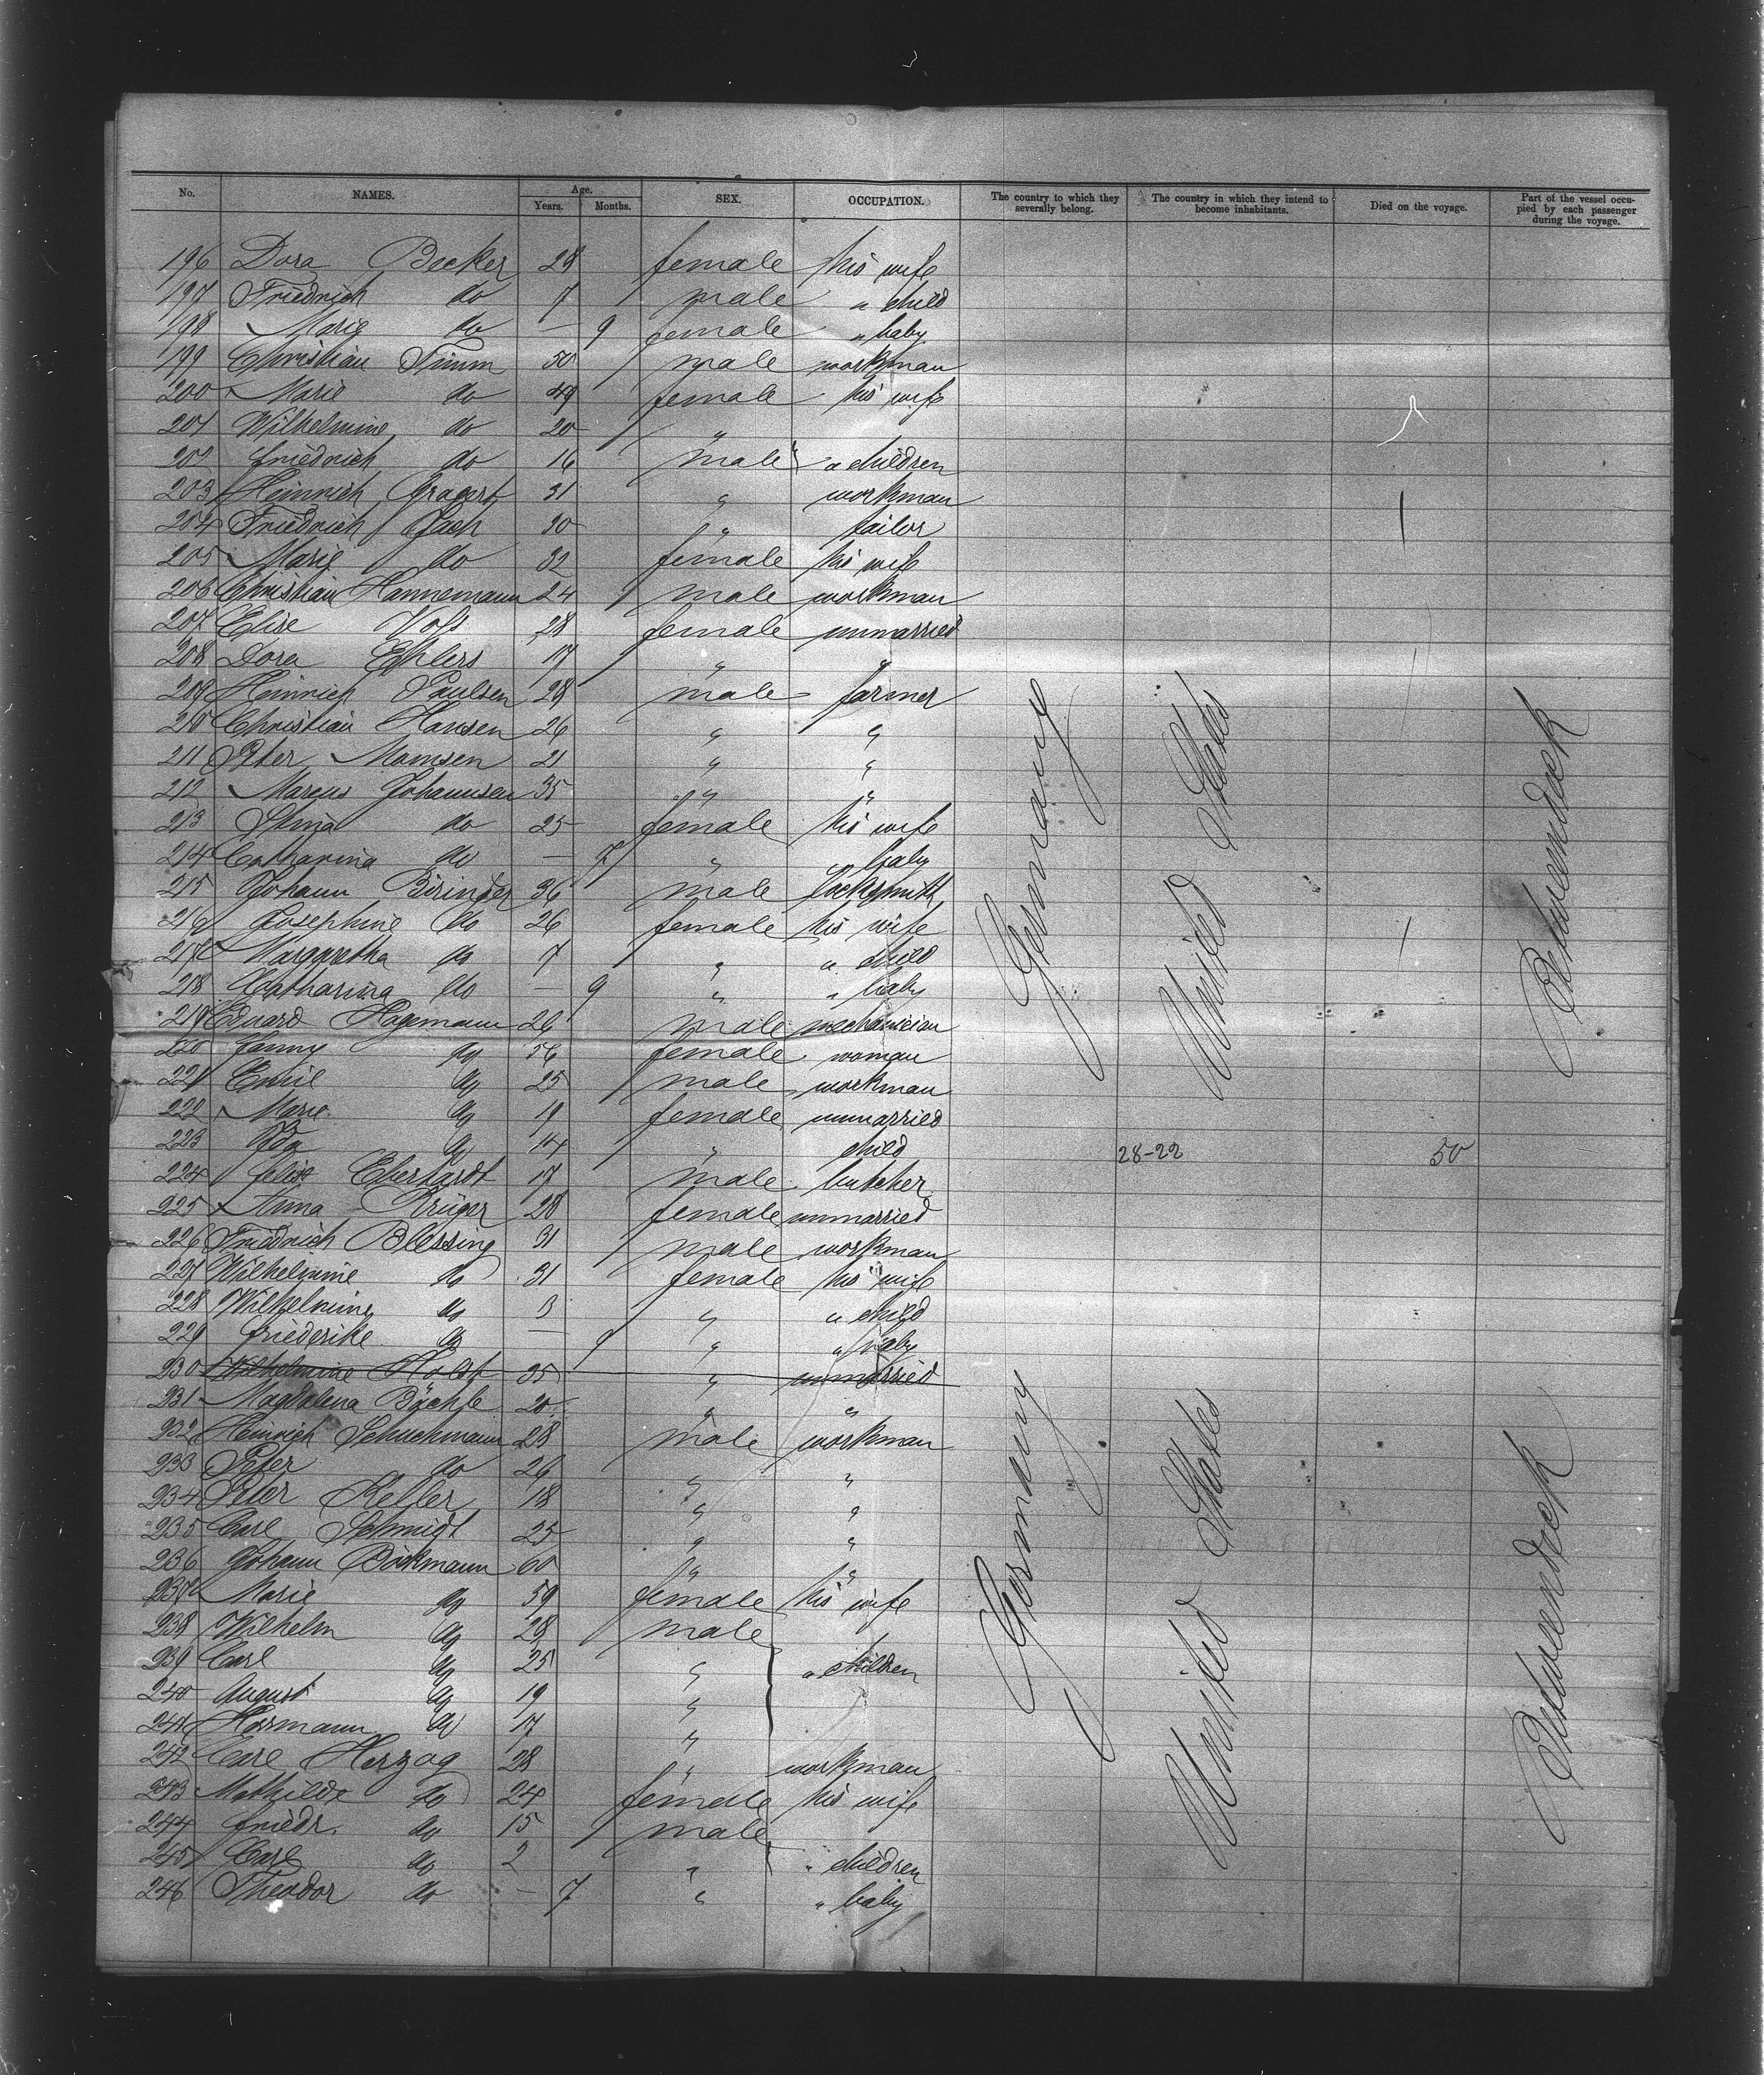 No. NAMES. Age. Years. Months. SEX. OCCUPATION. The country to which they severally belong. The country in which they intend to become inhabitants. Died on the voyage. Part of the vessel occupied by each passenger during the voyage.
196 Dora Becker 28 female his wife
197 Friedrich do 7 male " child
198 Marie do — 9 female " baby
199 Christian Timm 50 male workman
200 Marie do 49 female his wife
201 Wilhelmine do 20 "
202 Friedrich do 16 male " children
203 Heinrich 31 " workman
204 Friedrich 30 " tailor
205 Marie do 32 female his wife
206 Christian Hannemann 24 male workman
207 Elise Voss 28 female unmarried
208 Dora Ehlers 17 " "
209 Heinrich Paulsen 28 male farmer
210 Christian Hansen 26 " "
211 Peter Momsen 21 " "
212 Marcus Johannsen 35 " "
213 Stina do 25 female his wife
214 Catharina do — 7 " " baby
215 Johann 36 male locksmith
216 Josephine do 26 female his wife
217 Margaretha do 7 " " child
218 Catharina do — 9 " " baby
219 Eduard Hagemann 26 male mechanician
220 Fanny do 56 female woman
221 Emil do 25 male workman
222 Marie do 19 female unmarried
223 Ida do 14 " child 28-22 50
224 Felix Eberhardt 17 male butcher
225 Anna Krüger 28 female unmarried
226 Friedrich Blessing 31 male workman
227 Wilhelmine do 31 female his wife
228 Wilhelmine do 3 " " child
229 Friederike do — 9 " " baby
230 Wilhelmine Holst 35 " unmarried
231 Magdalena Bächle 20 " "
232 Heinrich Schuchmann 28 male workman
233 Peter do 26 " "
234 Peter Keller 18 " "
235 Carl Schmidt 25 " "
236 Johann Böckmann 60 " "
237 Marie do 59 female his wife
238 Wilhelm do 28 male
239 Carl do 25 " " children
240 August do 19 "
241 Herrmann do 17 "
242 Carl Herzog 28 " workman
243 Mathilde do 24 female his wife
244 Friedr. do 15 male
245 Carl do 2 " " children
246 Theodor do — 7 " " baby
Germany United States Betweendeck
Germany United States Betweendeck